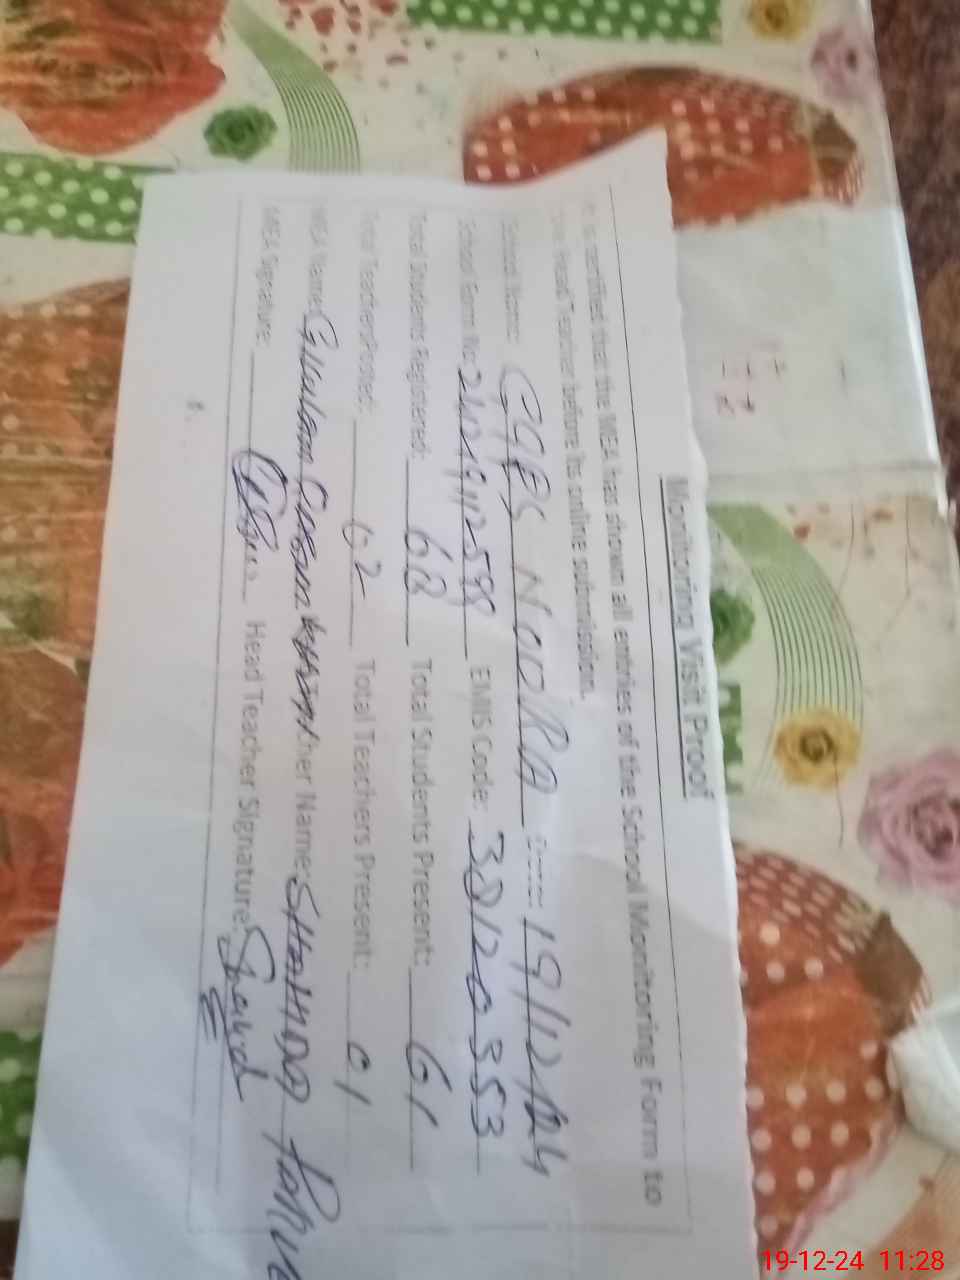 Monitoring Visit Proof
It is certified that the MEA has shown all entries of the School Monitoring Form to
the Head Teacher before its online submission.
School Name: GGPS NOORA Date: 19/12/24
School Form No: EMIS Code: 38120353
Total Students Registered: 68 Total Students Present: 61
Total Teacher Posted: 02 Total Teachers Present: 01
MEA Name: Ghulam Teacher Name: SHAHIDA
MEA Signature: Head Teacher Signature: Shahid
19-12-24 11:28